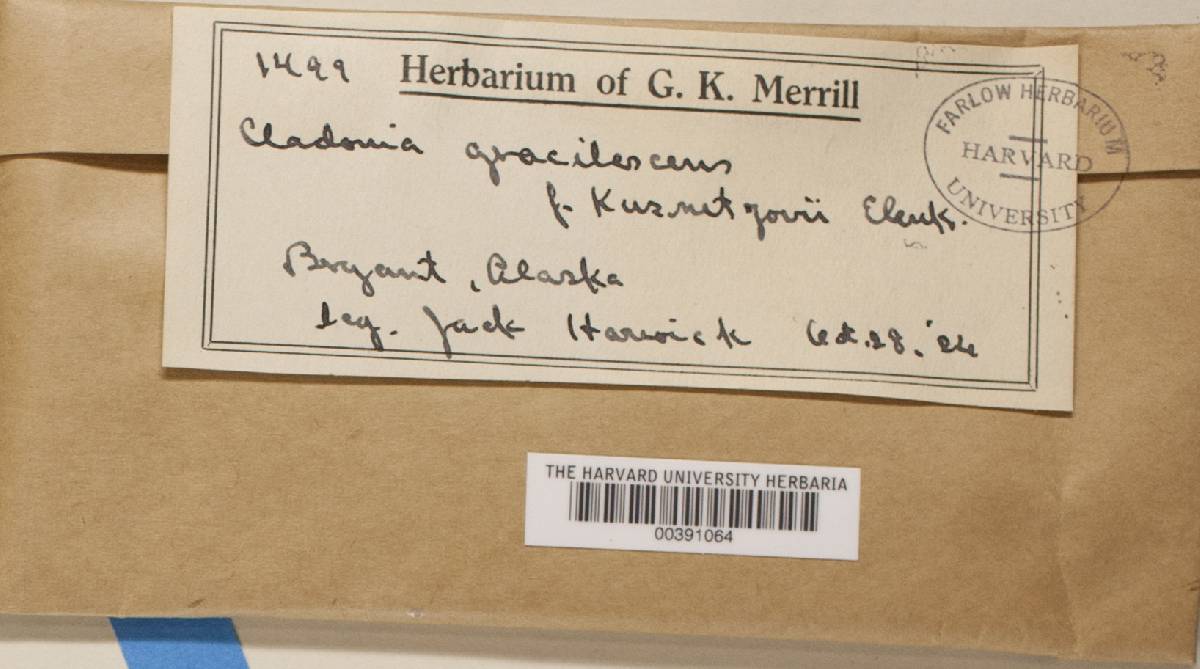 1499 Herbarium of G. K. Merrill
Cladonia gracilescens
f. Kusnetzovii Elenk.
Bryant, Alaska
leg. Jack Harwick Oct. 28. '24
FARLOW HERBARIUM
HARVARD
UNIVERSITY
THE HARVARD UNIVERSITY HERBARIA
00391064